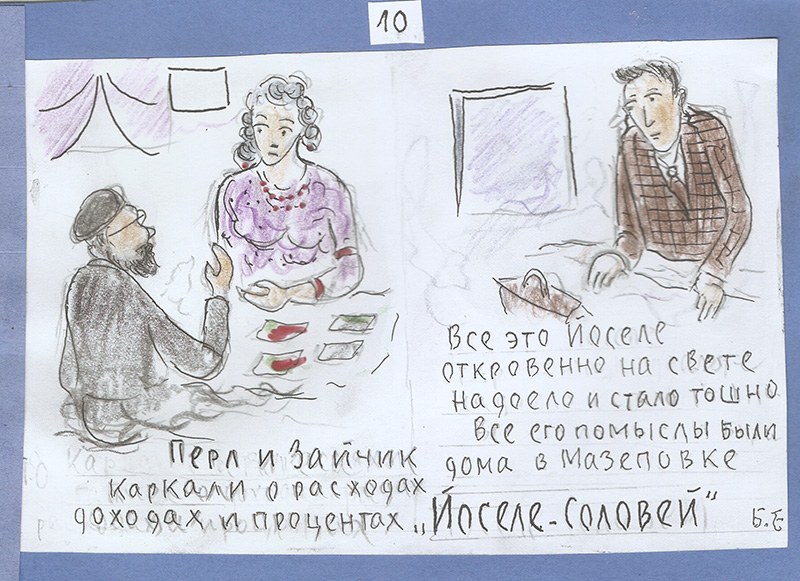 10
Перл и Зайчик
каркали о расходах
доходах и процентах
Все это Йоселе
откровенно на свете
надоело и стало тошно
Все его помыслы были
дома в Мазеповке
„Йоселе-Соловей"
Б.Е